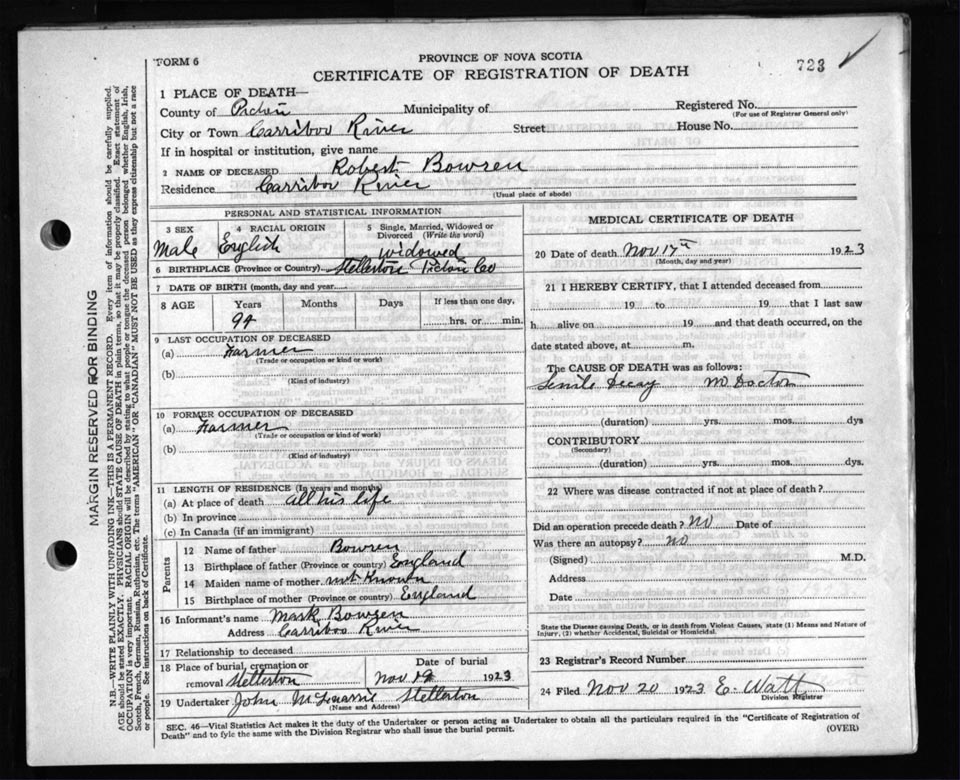 FORM 6
PROVINCE OF NOVA SCOTIA
723
CERTIFICATE OF REGISTRATION OF DEATH
1 PLACE OF DEATH—
County of Pictou Municipality of Registered No.
(For use of Registrar General only)
City or Town Carribou River Street House No.
If in hospital or institution, give name
2 NAME OF DECEASED Robert Bowren
Residence Carribou River
(Usual place of abode)
PERSONAL AND STATISTICAL INFORMATION
3 SEX 4 RACIAL ORIGIN 5 Single, Married, Widowed or Divorced (Write the word)
Male English widowed
6 BIRTHPLACE (Province or Country) Stellerton Pictou Co
7 DATE OF BIRTH (month, day and year)
8 AGE Years Months Days If less than one day,
94 hrs. or min.
9 LAST OCCUPATION OF DECEASED
(a) Farmer
(Trade or occupation or kind of work)
(b)
(Kind of industry)
10 FORMER OCCUPATION OF DECEASED
(a) Farmer
(Trade or occupation or kind of work)
(b)
(Kind of industry)
11 LENGTH OF RESIDENCE (In years and months)
(a) At place of death all his life
(b) In province
(c) In Canada (if an immigrant)
Parents
12 Name of father Bowren
13 Birthplace of father (Province or country) England
14 Maiden name of mother not Known
15 Birthplace of mother (Province or country) England
16 Informant's name Mark Bowren
Address Carriboo River
17 Relationship to deceased
18 Place of burial, cremation or Date of burial
removal Stellerton Nov 19 1923
19 Undertaker John Stellerton
(Name and Address)
MEDICAL CERTIFICATE OF DEATH
20 Date of death Nov 17th 1923
(Month, day and year)
21 I HEREBY CERTIFY, that I attended deceased from
19 to 19 that I last saw
h alive on 19 and that death occurred, on the
date stated above, at m.
The CAUSE OF DEATH was as follows:
Senile Decay no Doctor
(duration) yrs. mos. dys
CONTRIBUTORY
(Secondary)
(duration) yrs. mos. dys.
22 Where was disease contracted if not at place of death?
Did an operation precede death? No Date of
Was there an autopsy? no
(Signed) M.D.
Address
Date
State the Disease causing Death, or in death from Violent Causes, state (1) Means and Nature of
Injury, (2) whether Accidental, Suicidal or Homicidal.
23 Registrar's Record Number
24 Filed Nov 20 1923 E. Watt
Division Registrar
SEC. 46—Vital Statistics Act makes it the duty of the Undertaker or person acting as Undertaker to obtain all the particulars required in the "Certificate of Registration of
Death" and to fyle the same with the Division Registrar who shall issue the burial permit. (OVER)
MARGIN RESERVED FOR BINDING
N.B.—WRITE PLAINLY WITH UNFADING INK—THIS IS A PERMANENT RECORD. Every item of information should be carefully supplied.
AGE should be stated EXACTLY. PHYSICIANS should STATE CAUSE OF DEATH in plain terms, so that it may be properly classified. Exact statement of
OCCUPATION is very important. RACIAL ORIGIN will be described by stating to what people or tongue the deceased person belonged whether English, Irish,
Scotch, French, German, Russian, Ruthenian, etc. The terms "AMERICAN" OR "CANADIAN" MUST NOT BE USED as they express citizenship but not a race
or people. See instructions on back of Certificate.